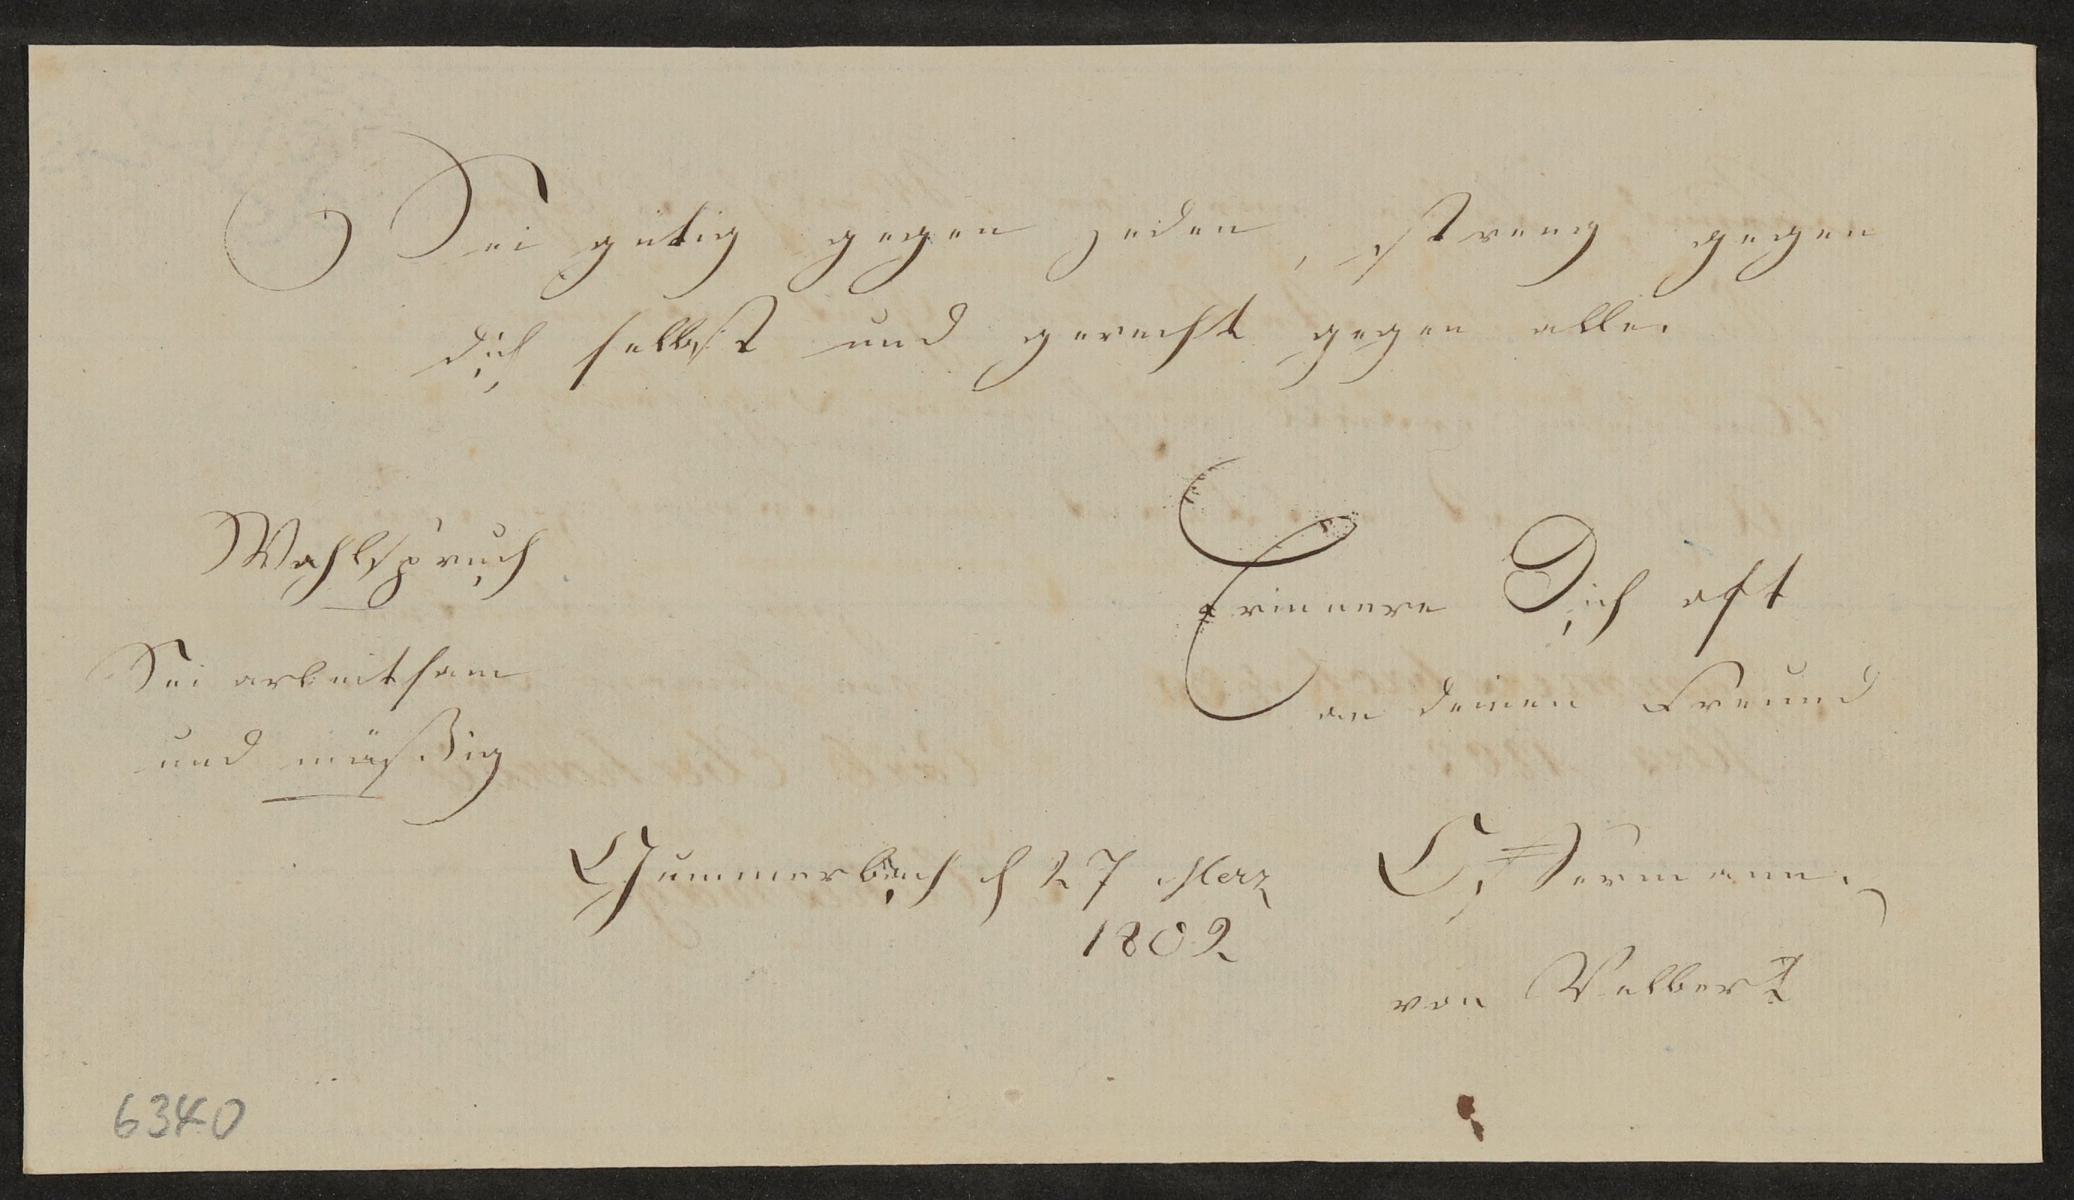 Sei gütig gegen jeden, streng gegen
dich selbst und gerecht gegen alle.
Wahlspruch
Sei arbeitsam
und mäßig
Erinnere Dich oft
an deinen Freund
Gummersbach d 27 Merz
1802
von Velbert
6340